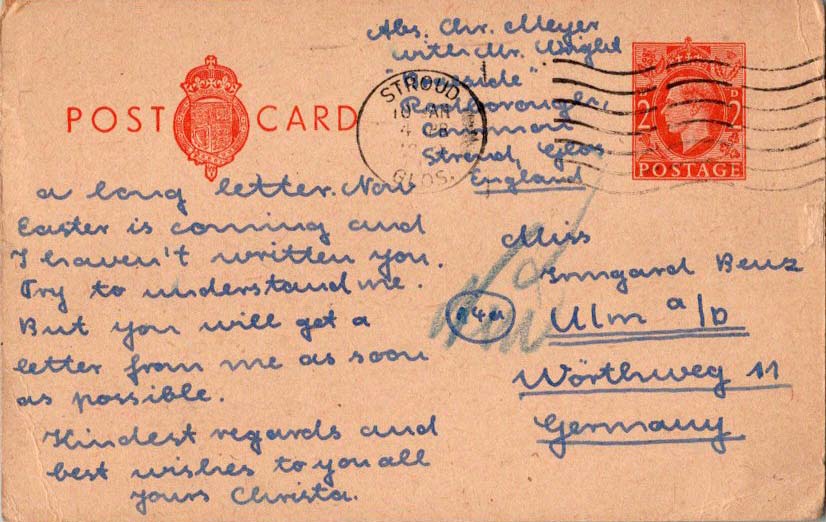 Abs. Chr. Meyer
with Mr. Wright
"
Rodborough,
Common
Stroud, Glos
England
POST CARD
STROUD
10 AM
4
GLOS.
2D 2D
POSTAGE
a long letter. Now
Easter is coming and
I haven't written you.
Try to understand me.
But you will get a
letter from me as soon
as possible.
Kindest regards and
best wishes to you all
yours Christa.
Miss
Irmgard Benz
Ulm a/D
Wörthweg 11
Germany